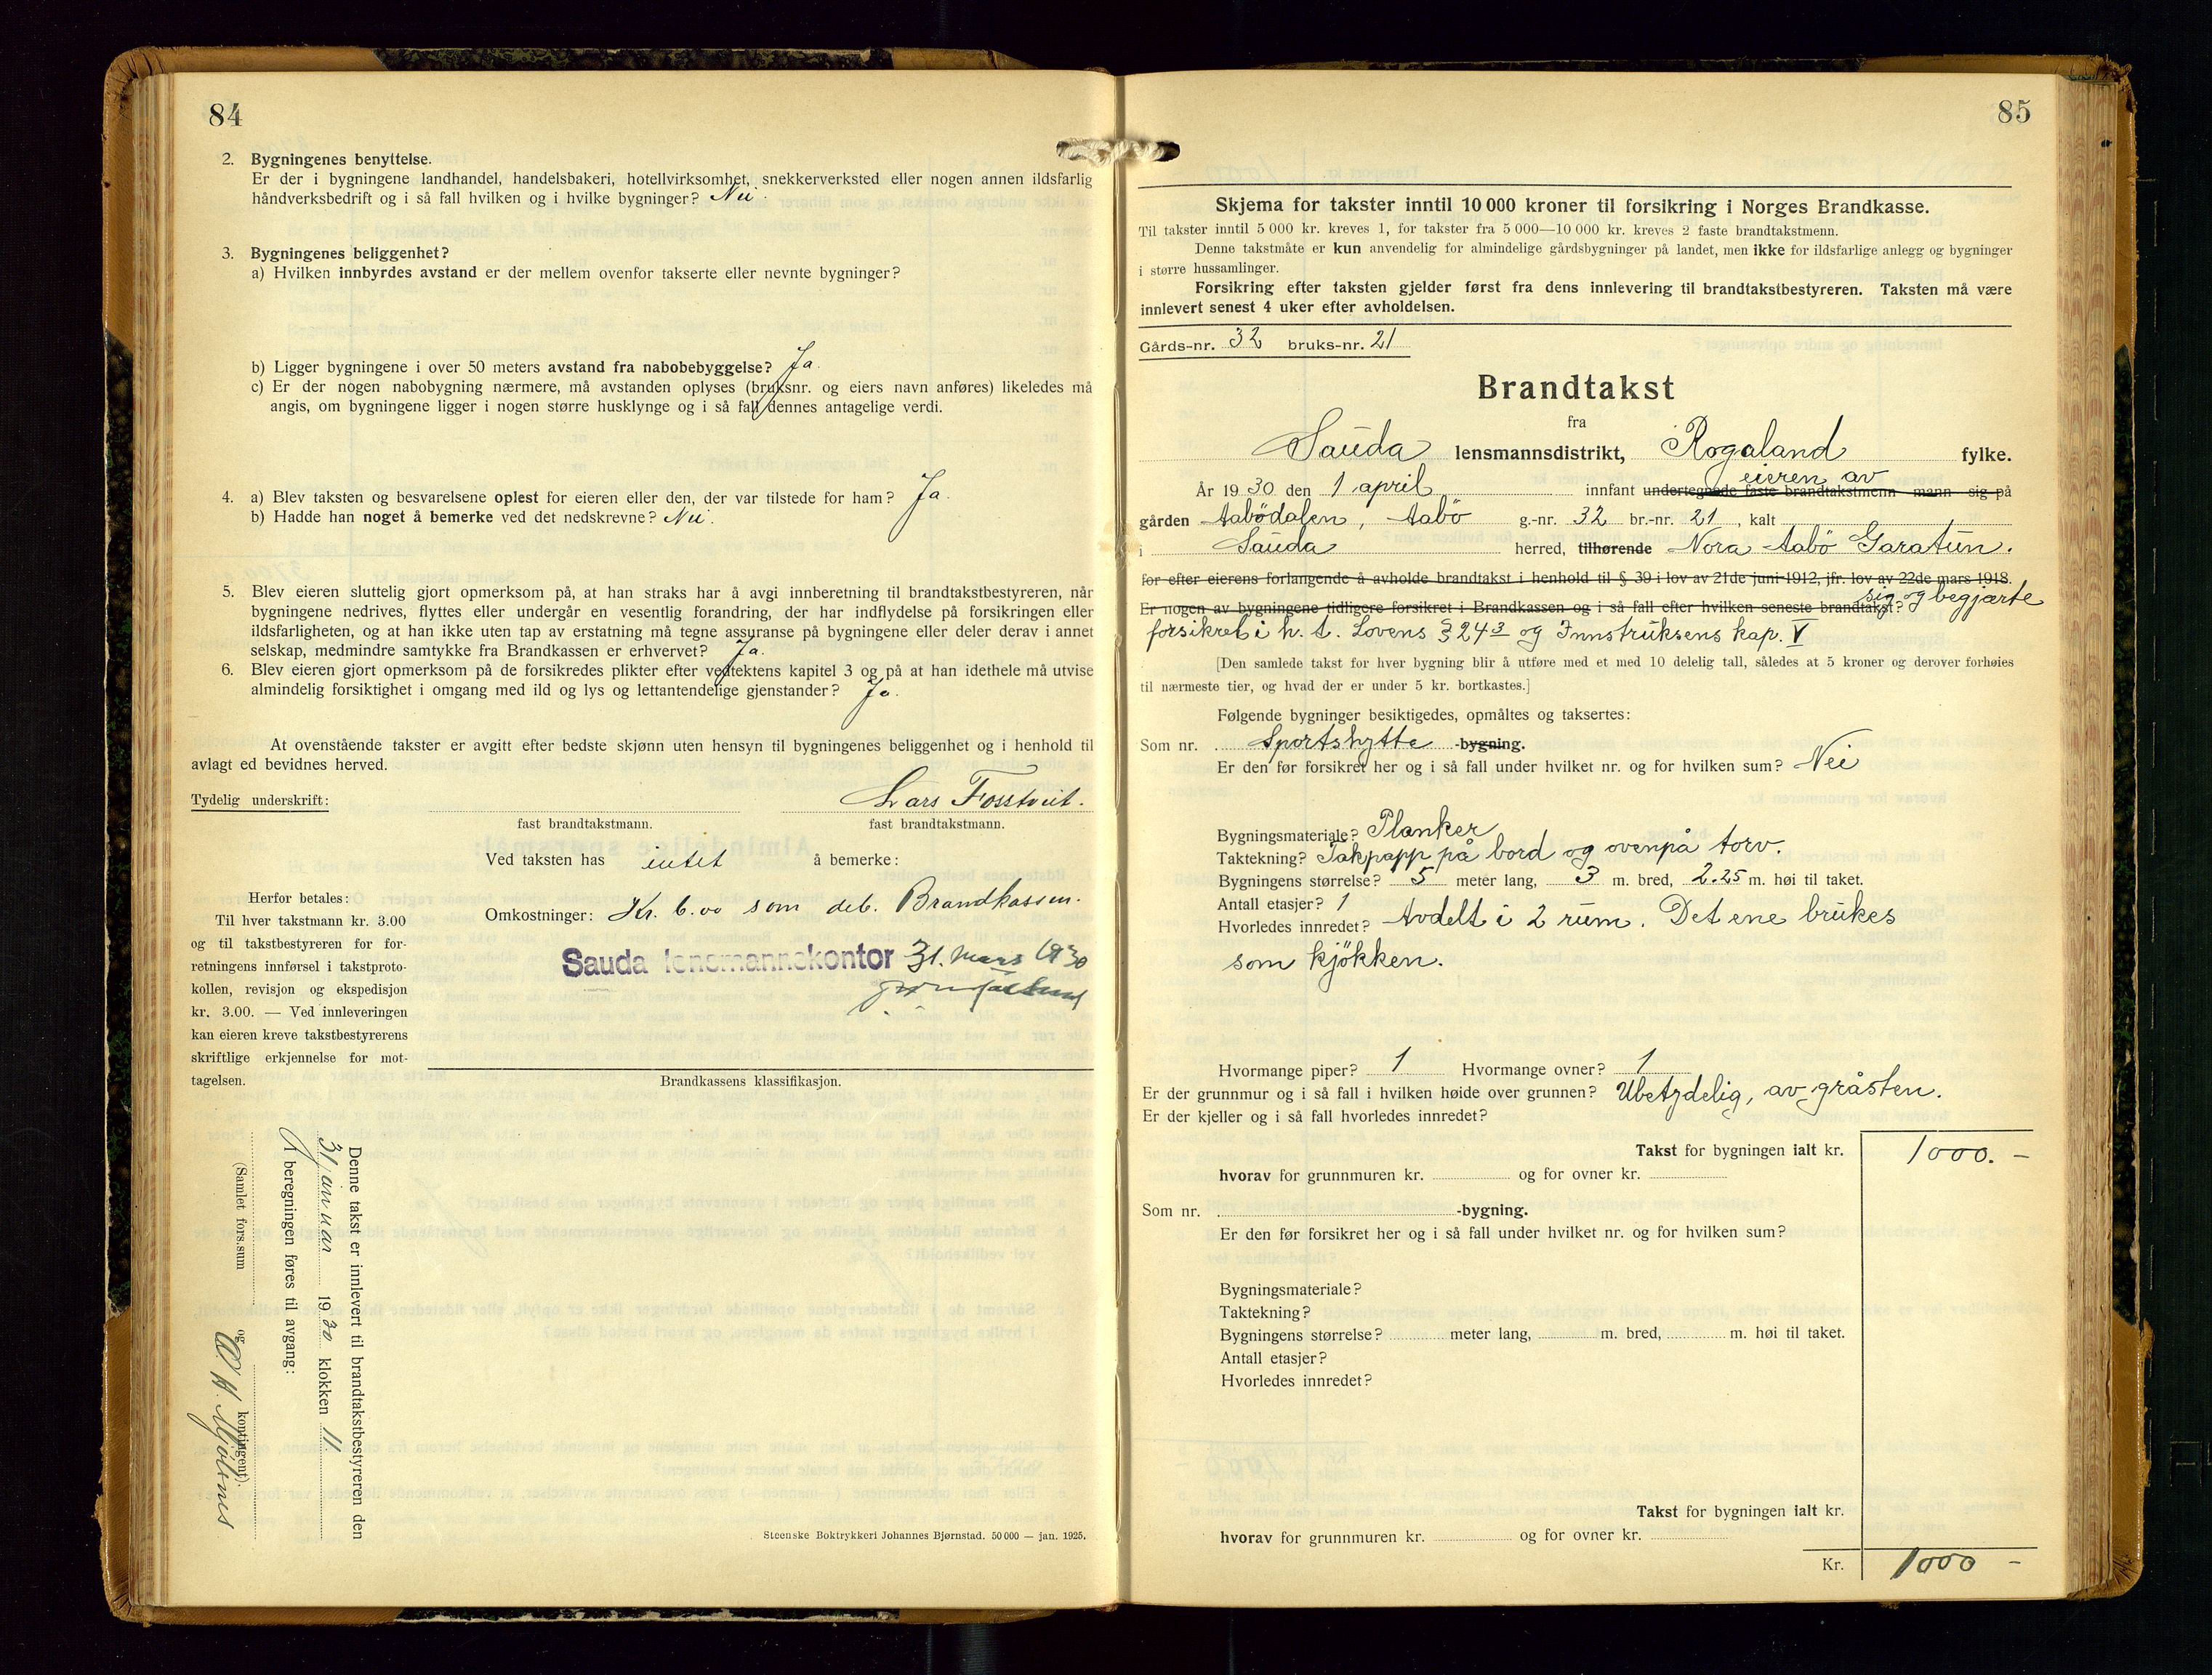 84
2. Bygningenes benyttelse.
Er der i bygningene landhandel, handelsbakeri, hotellvirksomhet, snekkerverksted eller nogen annen ildsfarlig
håndverksbedrift og i så fall hvilken og i hvilke bygninger? Nei.
3. Bygningenes beliggenhet?
a) Hvilken innbyrdes avstand er der mellem ovenfor takserte eller nevnte bygninger?
b) Ligger bygningene i over 50 meters avstand fra nabobebyggelse? Ja.
c) Er der nogen nabobygning nærmere, må avstanden oplyses (bruksnr. og eiers navn anføres) likeledes må
angis, om bygningene ligger i nogen større husklynge og i så fall dennes antagelige verdi.
4. a) Blev taksten og besvarelsene oplest for eieren eller den, der var tilstede for ham? Ja.
b) Hadde han noget å bemerke ved det nedskrevne? Nei.
5. Blev eieren sluttelig gjort opmerksom på, at han straks har å avgi innberetning til brandtakstbestyreren, når
bygningene nedrives, flyttes eller undergår en vesentlig forandring, der har indflydelse på forsikringen eller
ildsfarligheten, og at han ikke uten tap av erstatning må tegne assuranse på bygningene eller deler derav i annet
selskap, medmindre samtykke fra Brandkassen er erhvervet? Ja.
6. Blev eieren gjort opmerksom på de forsikredes plikter efter vedtektens kapitel 3 og på at han idethele må utvise
almindelig forsiktighet i omgang med ild og lys og lettantendelige gjenstander? Ja.
At ovenstående takster er avgitt efter bedste skjønn uten hensyn til bygningenes beliggenhet og i henhold til
avlagt ed bevidnes herved.
Tydelig underskrift: Lars Fosstveit.
fast brandtakstmann. fast brandtakstmann.
Ved taksten has intet å bemerke:
Omkostninger: Kr. 6.00 som deb. Brandkassen.
Sauda lensmannskontor 31. mars 1930
Herfor betales:
Til hver takstmann kr. 3.00
og til takstbestyreren for for-
retningens innførsel i takstproto-
kollen, revisjon og ekspedisjon
kr. 3.00. — Ved innleveringen
kan eieren kreve takstbestyrerens
skriftlige erkjennelse for mot-
tagelsen.
Brandkassens klassifikasjon.
Denne takst er innlevert til brandtakstbestyreren den
31 januar 1930 klokken 11
I beregningen føres til avgang:
(Samlet fors.sum og kontingent)
Steenske Boktrykkeri Johannes Bjørnstad. 50 000 — jan. 1925.
85
Skjema for takster inntil 10 000 kroner til forsikring i Norges Brandkasse.
Til takster inntil 5 000 kr. kreves 1, for takster fra 5 000—10 000 kr. kreves 2 faste brandtakstmenn.
Denne takstmåte er kun anvendelig for almindelige gårdsbygninger på landet, men ikke for ildsfarlige anlegg og bygninger
i større hussamlinger.
Forsikring efter taksten gjelder først fra dens innlevering til brandtakstbestyreren. Taksten må være
innlevert senest 4 uker efter avholdelsen.
Gårds-nr. 32 bruks-nr. 21
Brandtakst
fra
Sauda lensmannsdistrikt, Rogaland fylke.
eieren av
År 1930 den 1 april innfant undertegnede faste brandtakstmenn mann sig på
gården Aabødalen, Aabø g.-nr. 32 br.-nr. 21, kalt
i Sauda herred, tilhørende Nora Aabø Garatun.
for efter eierens forlangende å avholde brandtakst i henhold til § 39 i lov av 21de juni 1912, jfr. lov av 22de mars 1918.
sig og begjærte
Er nogen av bygningene tidligere forsikret i Brandkassen og i så fall efter hvilken seneste brandtakst?
forsikret i h. t. Lovens § 24 3 og Innstruksens kap. V
[Den samlede takst for hver bygning blir å utføre med et med 10 delelig tall, således at 5 kroner og derover forhøies
til nærmeste tier, og hvad der er under 5 kr. bortkastes.]
Følgende bygninger besiktigedes, opmåltes og taksertes:
Som nr. Sportshytte -bygning.
Er den før forsikret her og i så fall under hvilket nr. og for hvilken sum? Nei
Bygningsmateriale? Planker
Taktekning? Takpapp på bord og ovenpå torv.
Bygningens størrelse? 5 meter lang, 3 m. bred, 2.25 m. høi til taket.
Antall etasjer? 1
Hvorledes innredet? Avdelt i 2 rum. Det ene brukes
som kjökken.
Hvormange piper? 1 Hvormange ovner? 1
Er der grunnmur og i så fall i hvilken høide over grunnen? Ubetydelig, av gråsten.
Er der kjeller og i så fall hvorledes innredet?
Takst for bygningen ialt kr. 1000.-
hvorav for grunnmuren kr. og for ovner kr.
Som nr. -bygning.
Er den før forsikret her og i så fall under hvilket nr. og for hvilken sum?
Bygningsmateriale?
Taktekning?
Bygningens størrelse? meter lang, m. bred, m. høi til taket.
Antall etasjer?
Hvorledes innredet?
Takst for bygningen ialt kr.
hvorav for grunnmuren kr. og for ovner kr.
Kr. 1000 -